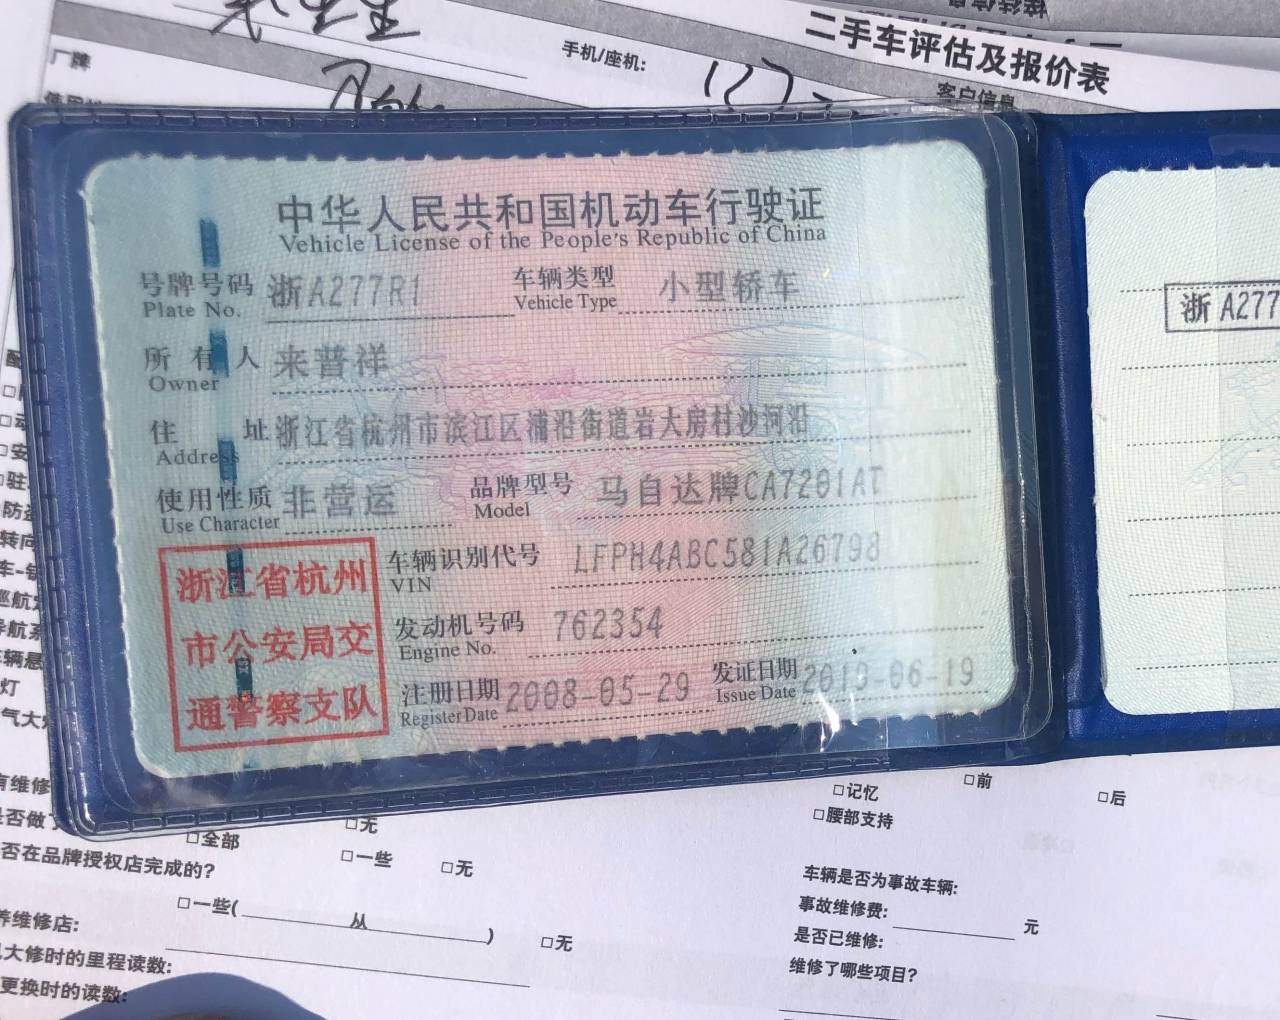 厂牌
手机/座机:
二手车评估及报价表
客户信息
中华人民共和国机动车行驶证
Vehicle License of the People's Republic of China
号牌号码 浙A277R1 车辆类型 小型轿车
Plate No. Vehicle Type
所有人 来普祥
Owner
住址 浙江省杭州市滨江区浦沿街道岩大房村沙河沿
Address
使用性质 非营运 品牌型号 马自达牌CA7201AT
Use Character Model
浙江省杭州
市公安局交
通警察支队
车辆识别代号 LFPH4ABC581A26798
VIN
发动机号码 762354
Engine No.
注册日期 2008-05-29 发证日期 2019-06-19
Register Date Issue Date
浙A277
灯
□记忆 □前 □后
□腰部支持
□全部 □无
否在品牌授权店完成的? □一些 □无
□一些( 从 ) □无
养维修店:
大修时的里程读数:
更换时的读数:
车辆是否为事故车辆:
事故维修费: 元
是否已维修:
维修了哪些项目?